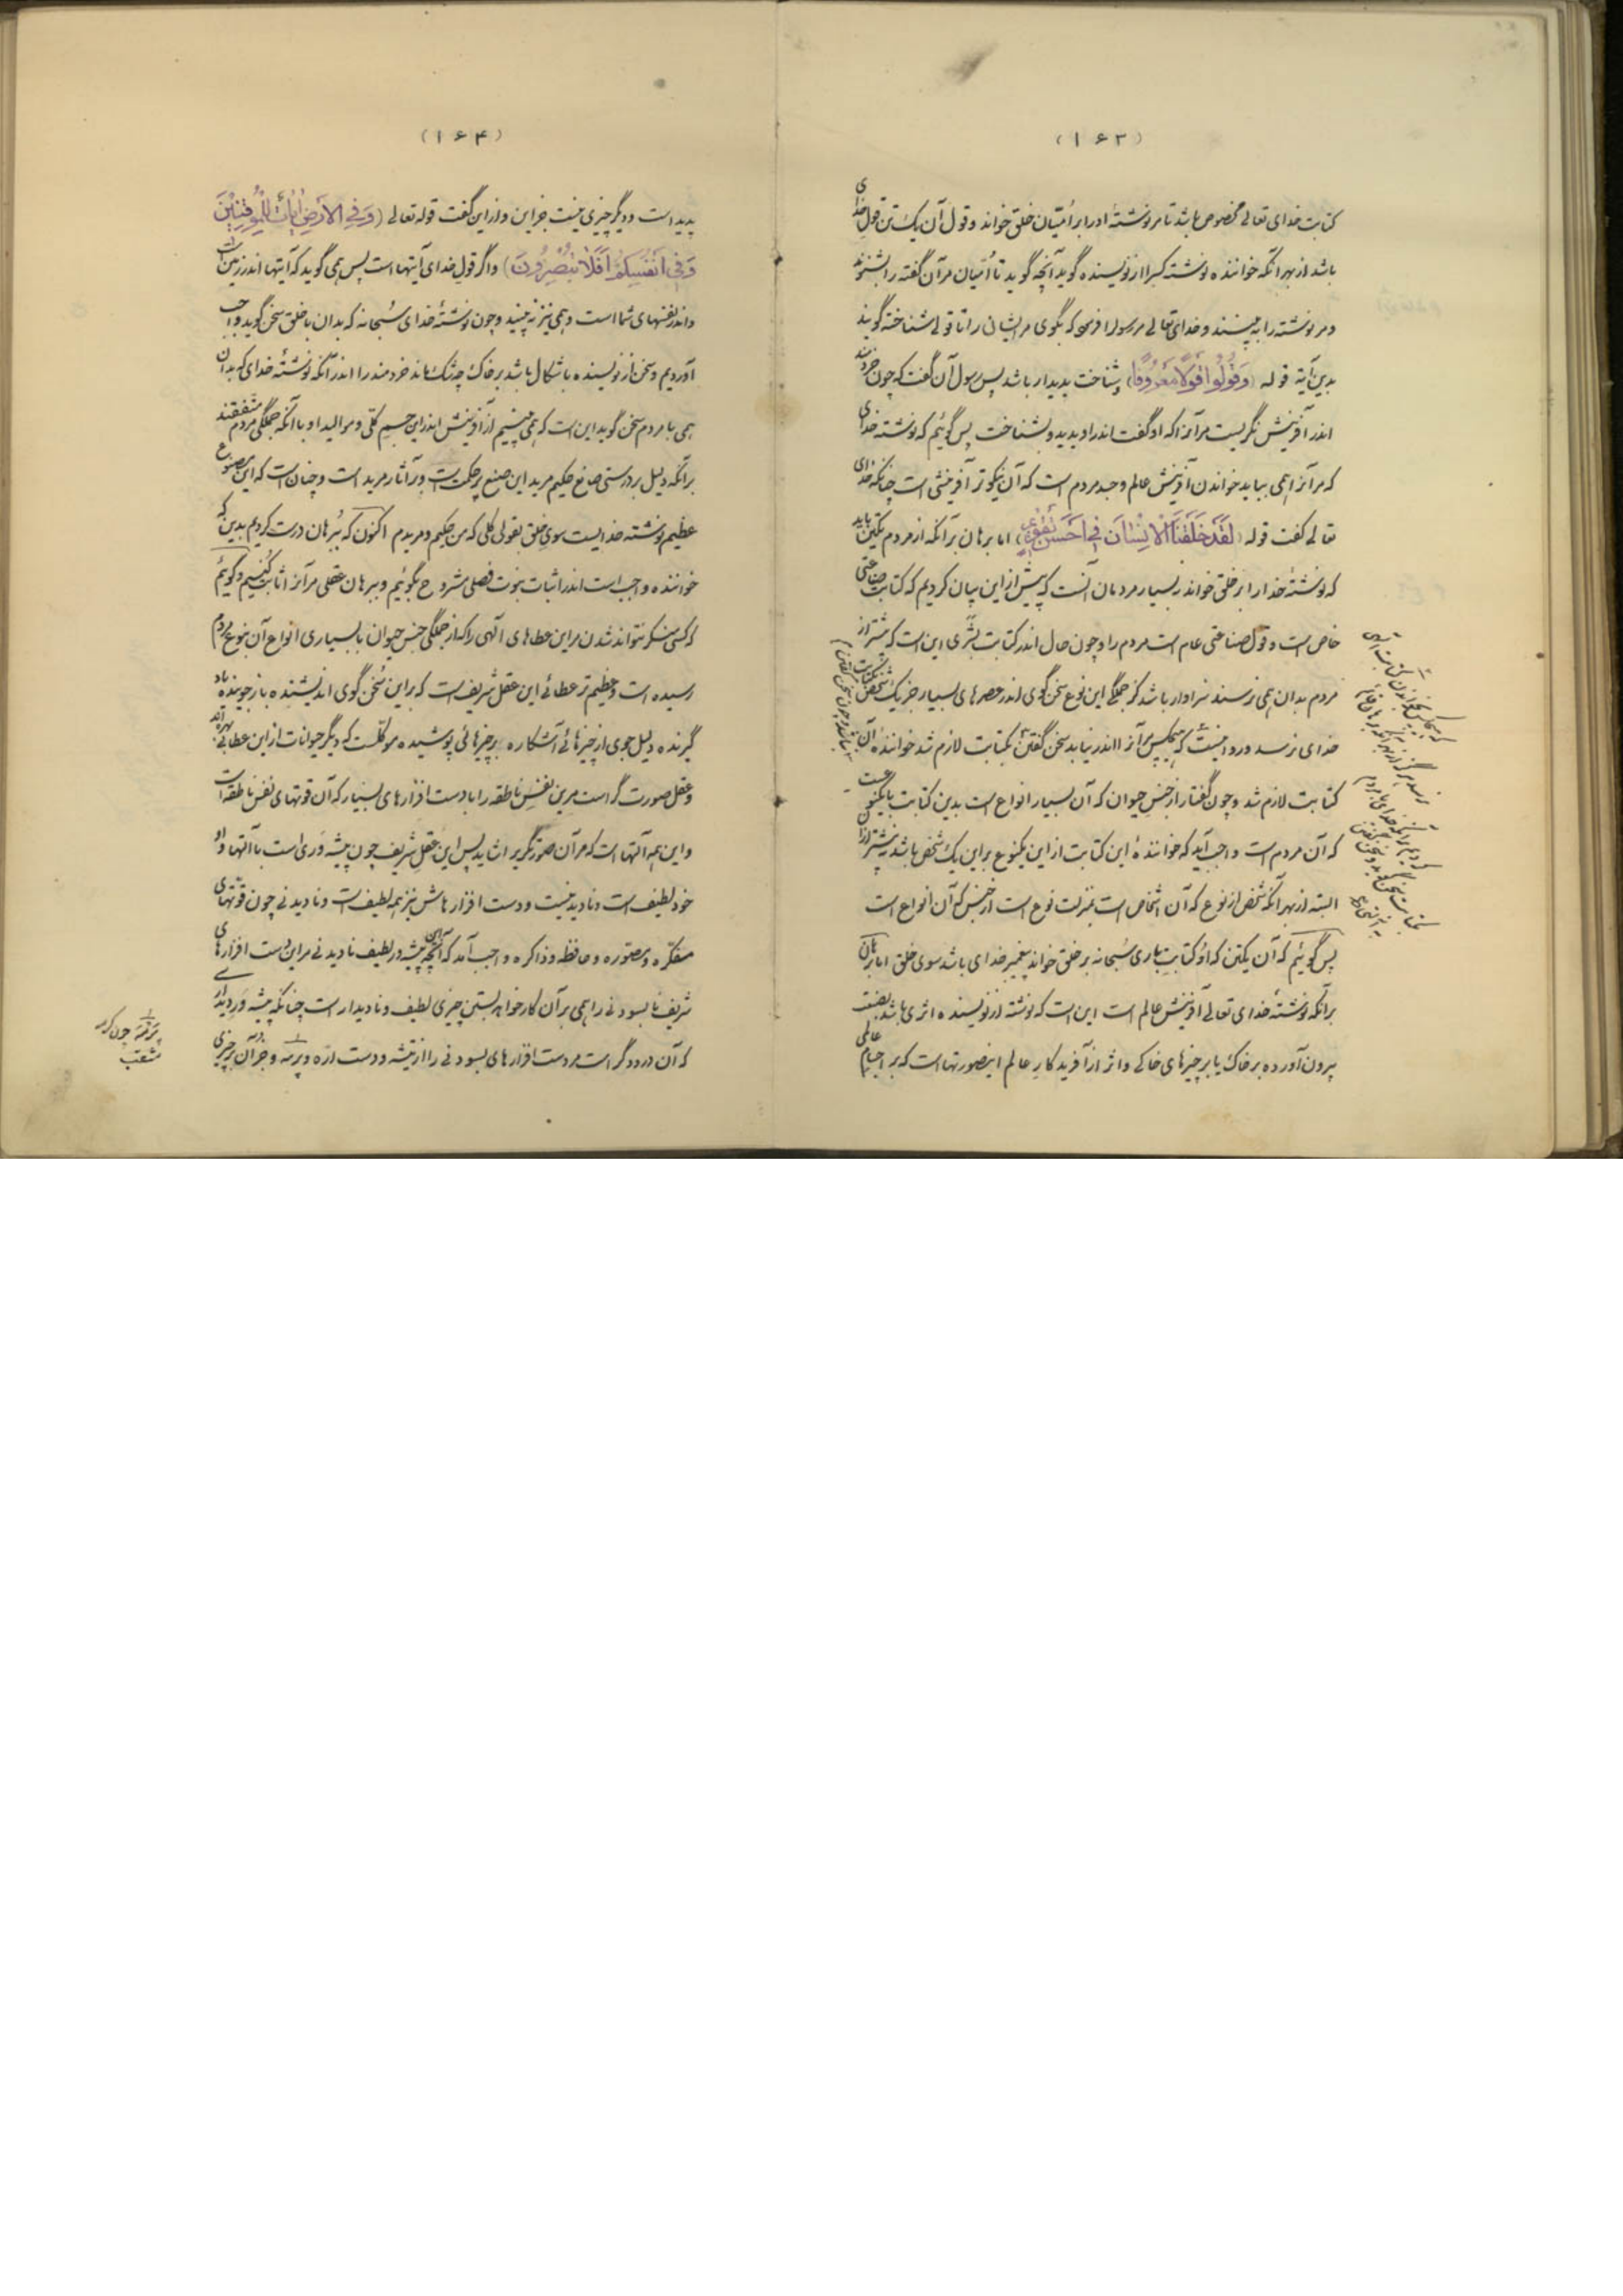 (۱۶۳)
کتابت خدای تعالی مخصوص باشد تا مر نوشتهٔ او را بر امّتیان خلق خواند و قول آن یک تن قول خدای
باشد از بهر آنکه خوانندهٔ نوشته کسرا از نویسنده گوید آنچه گوید تا امّتیان مر آن گفته را بشنوند
و مر نوشته را به بینند و خدای تعالی مر رسول را فرمود که بگوی مر ایشان را تا قولی شناخته گویند
بدین آیة قوله (وَقُولُوا قَوْلًا مَعْرُوفًا) و شناخت پدیدار باشد پس رسول آن گفت که چون خردمند
اندر آفرینش نگریست مر آنرا که او گفت اندر او بدید و بشناخت پس گوئیم که نوشته خدای
که مر آنرا همی بباید خواندن آفرینش عالم و جسد مردم است که آن نیکوتر آفرینشی است چنانکه خدای
تعالی گفت قوله (لَقَدْ خَلَقْنَا الْاِنْسَانَ فِی اَحْسَنِ تَقْوِیمٍ) اما برهان بر آنکه از مردم یکتن باید
که نوشتهٔ خدا را بر خلق خواند نه بسیار مردمان آنست که پیش از این بیان کردیم که کتابت صناعتی
خاص است و قول صناعتی عام است مردم را و چون حال اندر کتابت بشری این است که بیشتر از
مردم بدان همی نرسند سزاوار باشد کز جملگی این نوع سخن گوی اندر عصرهای بسیار جز یک شخص بکتابت
خدای نرسد و روا نیست که هیچکس مر آنرا اندر نیابد سخن گفتن بکتابت لازم شد خواننده آن
کتابت لازم شد و چون گفتار از جنس حیوان که آن بسیار انواع است بدین کتابت بایکنوعست
که آن مردم است واجب آید که خوانندهٔ این کتابت از این یکنوع بر این یک شخص باشد نه بیشتر از آن
البته از بهر آنکه شخص از نوع که آن اشخاص است بمنزلت نوع است از جنس که آن انواع است
پس گوئیم که آن یکتن که او کتابت باری سبحانه بر خلق خواند پیغمبر خدای باشد سوی خلق اما برهان
برآنکه نوشتهٔ خدای تعالی آفرینش عالم است این است که نوشته از نویسنده اثری باشد بصنعت
بیرون آورده بر خاک یا بر چیزهای خاکی و اثر از آفریدگار عالم این صورتهاست که بر اجسام عالمی
(۱۶۴)
پدید است و دیگر چیزی نیست جز این و از این گفت قوله تعالی (وَفِی الْاَرْضِ اٰیَاتٌ لِلْمُوقِنِینَ
وَفِی اَنْفُسِکُمْ اَفَلَا تُبْصِرُونَ) و اگر قول خدای آیتها است پس همی گوید که آیتها اندر زمین است
و اندر نفسهای شما است و همی نیز نه بینید و چون نوشتهٔ خدای سبحانه که بدان با خلق سخن گوید واجب
آوردیم و سخن از نویسنده باشکال باشد بر خاک چه شک ماند خردمند را اندر آنکه نوشتهٔ خدای که بدان
همی با مردم سخن گوید این است که همی بینیم از آفرینش اندر این جسم کلی و موالید او با آنکه جملگی مردم متفقند
برآنکه دلیل بر درستی صانع حکیم مرید این صنع پر حکمت است و بر آثار مرید است و چنان است که این مصنوع
عظیم نوشته خدایست سوی خلق بقولی کلی که من حکیم و مریدم اکنون که ببرهان درست کردیم بدین که
خواننده واجب است اندر اثبات نبوت فصلی مشروح بگوئیم و ببرهان عقلی مر آنرا اثابت کنیم و گوئیم
که کسی منکر نتواند شدن مر این عطاهای الهی را که از جملگی جنس حیوان با بسیاری انواع آن بنوع مردم
رسیده است و عظیم‌تر عطائی این عقل شریف است که بر این سخن گوی اندیشنده باز جوینده یاد
گیرنده دلیل جوی از چیزهائی آشکاره بر چیزهائی پوشیده موکلست که دیگر حیوانات از این عطا بی بهره‌اند
و عقل صورت گر است مر این نفس ناطقه را با دست افزارهای بسیار که آن قوتهای نفس ناطقه است
و این همه آلتها است که مر آن صورتگر را شاید پس این عقل شریف چون پیشه وری است با آلتها و او
خود لطیف است و نادیدنیست و دست افزارهاش نیز همه لطیف است و نادیدنی چون قوتهای
مفکره و مصوره و حافظه و ذاکره و واجب آمد که آنچه این پیشه ور لطیف نادیدنی مر این دست افزارهای
شریف نابسودنی را همی بر آن کار خواهد بستن چیزی لطیف و نادیدار است چنانکه پیشه ور دیداری
که آن درودگر است مر دست افزارهای بسودنی را از تیشه و دست ارّه و پرمه و جز آن بر چیزی
پرمه چون کرمه
مثقب